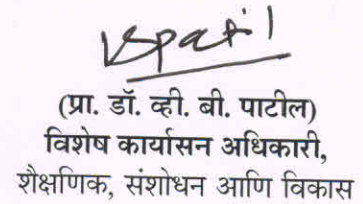 vspatil
(प्रा. डॉ. व्ही. बी. पाटील)
विशेष कार्यासन अधिकारी,
शैक्षणिक, संशोधन आणि विकास